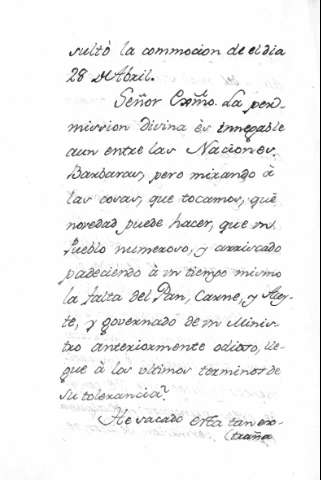 sultó la commocion de el dia
28 de Abril.
Señor Exm̃o. La per-
mission divina ès innegable
aun entre las Naciones
Barbaras, pero mirando à
las cosas, que tocamos, què
novedad puede hacer, que un
Pueblo numeroso, y arriscado
padeciendo à un tiempo mismo
la falta del Pan, Carne, y Azey-
te, y governado de un Minis-
tro anteriormente odioso, lle-
gue à los ultimos terminos de
su tolerancia?
He sacado esta tan ex-
traña